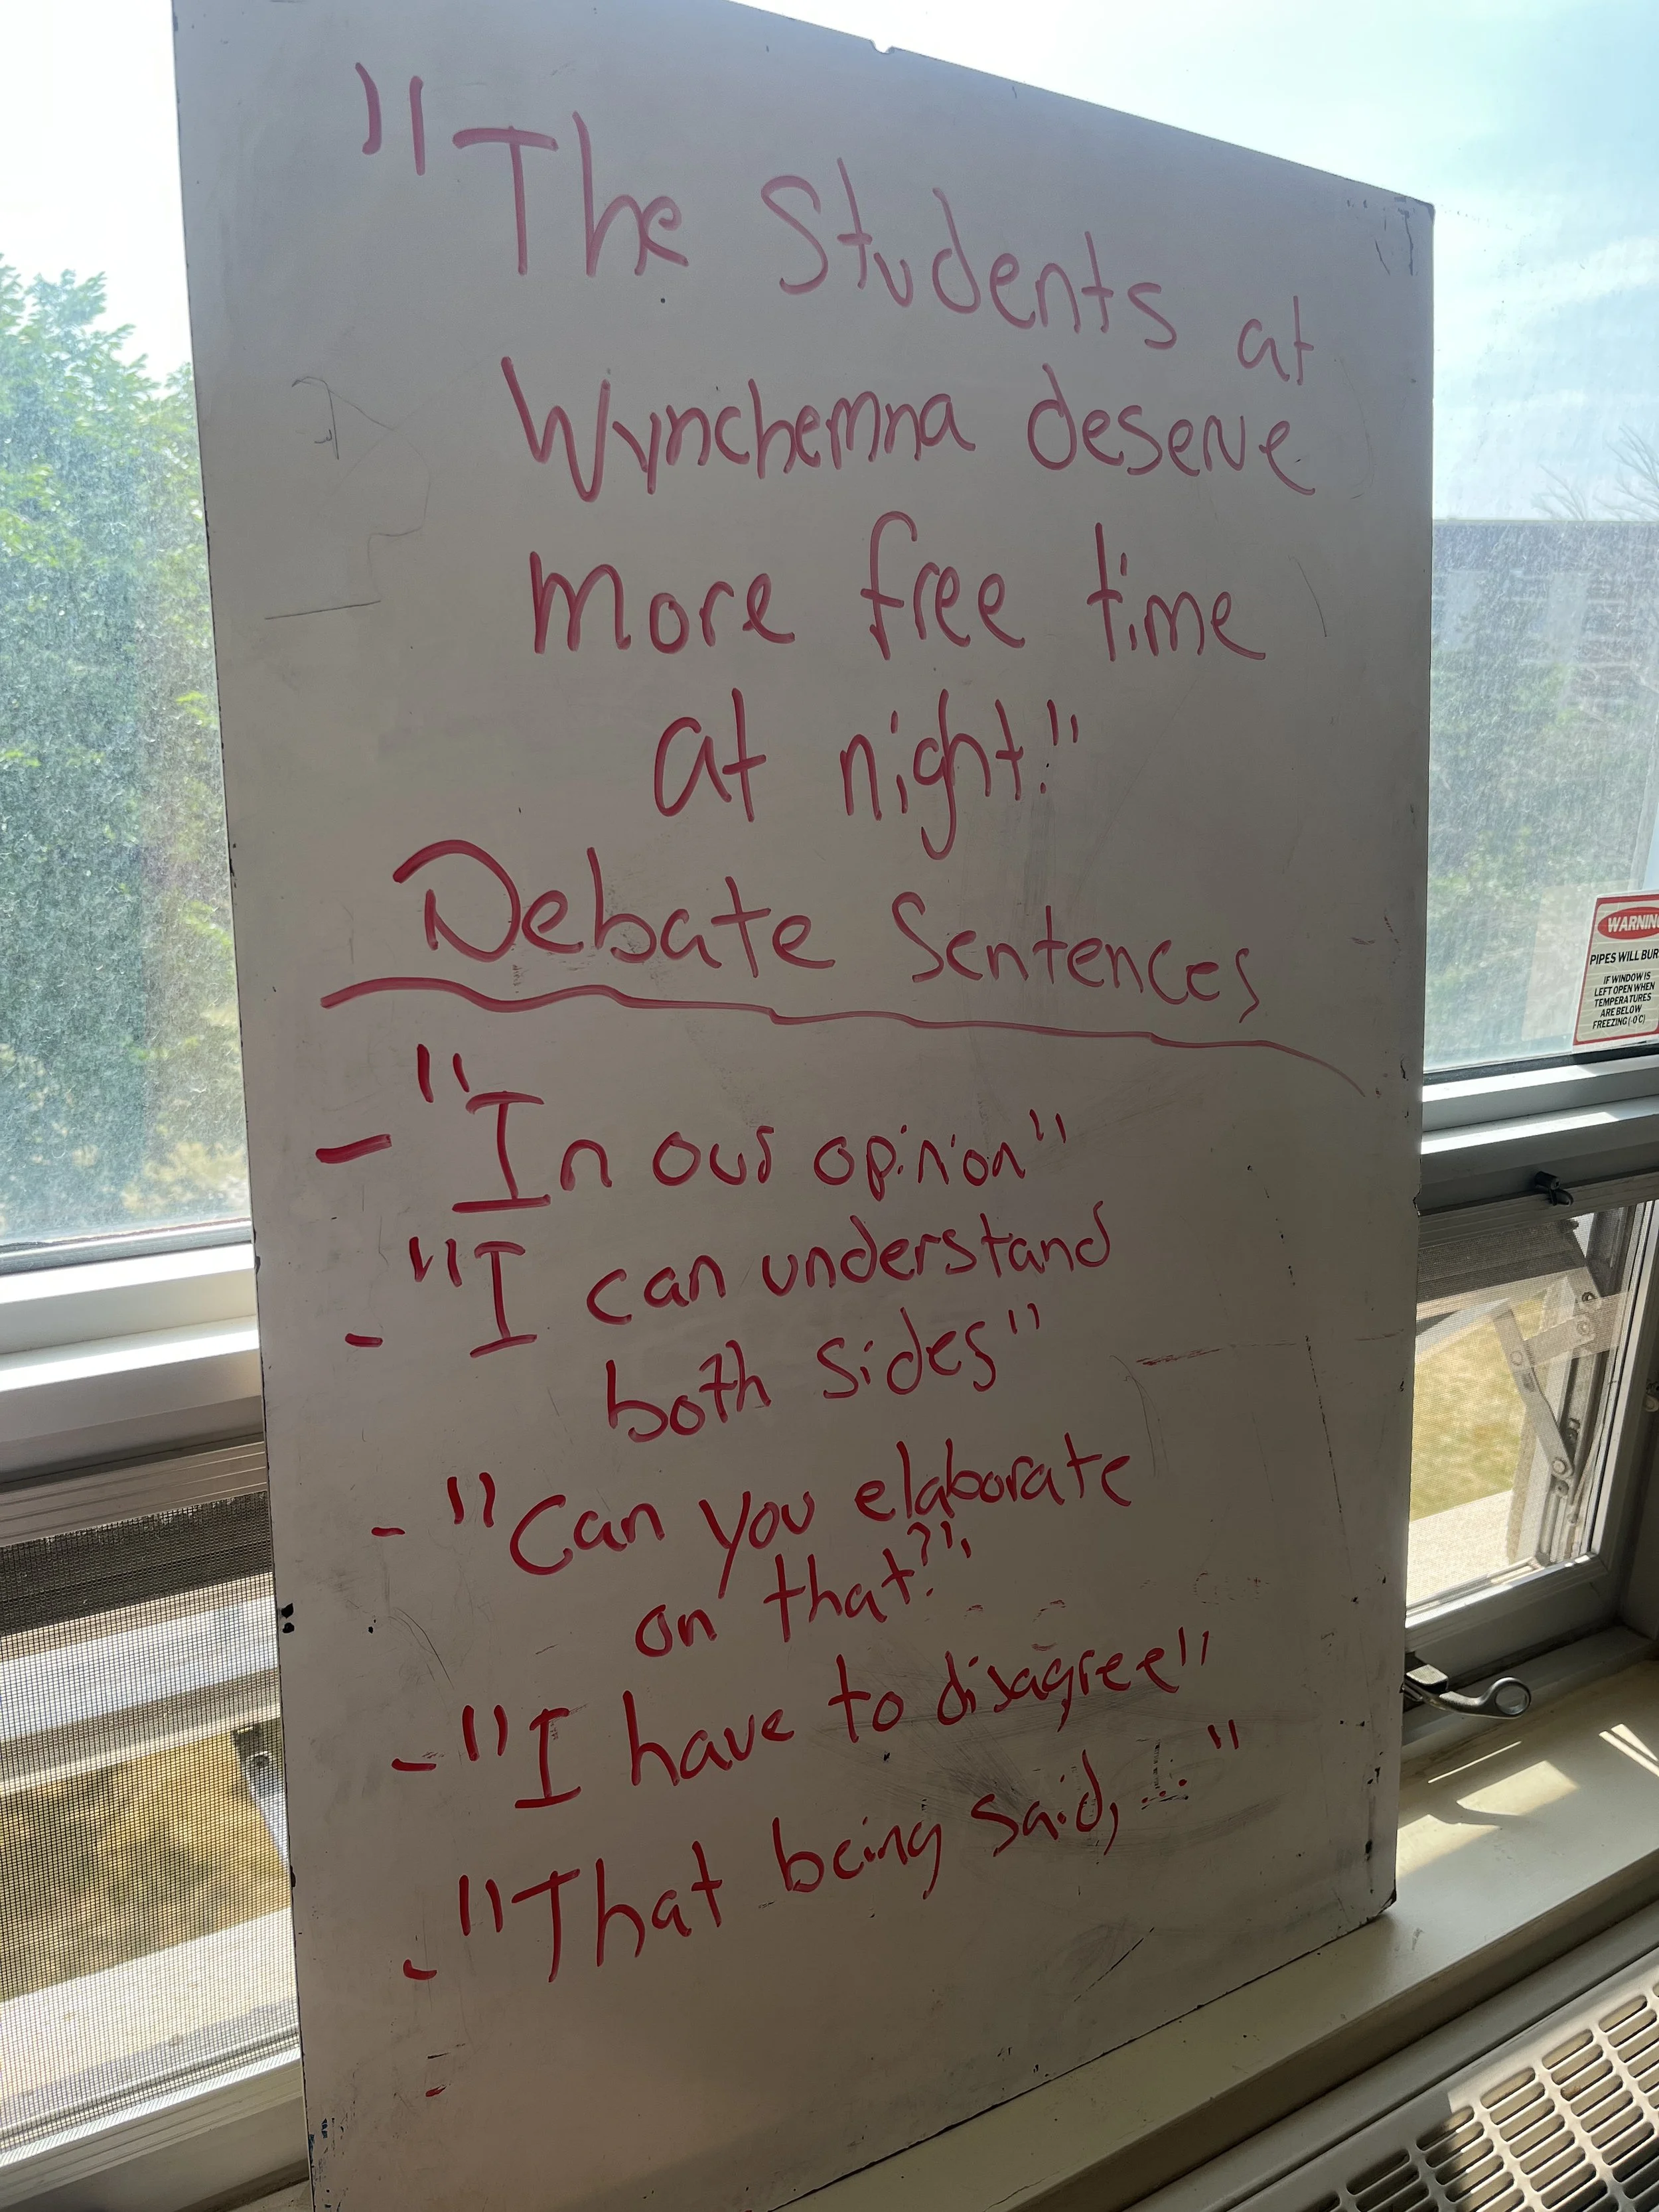 "The Students at
Wynchemna deserve
more free time
at night!"
Debate Sentences
- "In our opinion"
- "I can understand
both sides"
- "Can you elaborate
on that?"
- "I have to disagree"
- "That being said, ..."
-
WARNING
PIPES WILL BUR
IF WINDOW IS
LEFT OPEN WHEN
TEMPERATURES
ARE BELOW
FREEZING (-0°C)